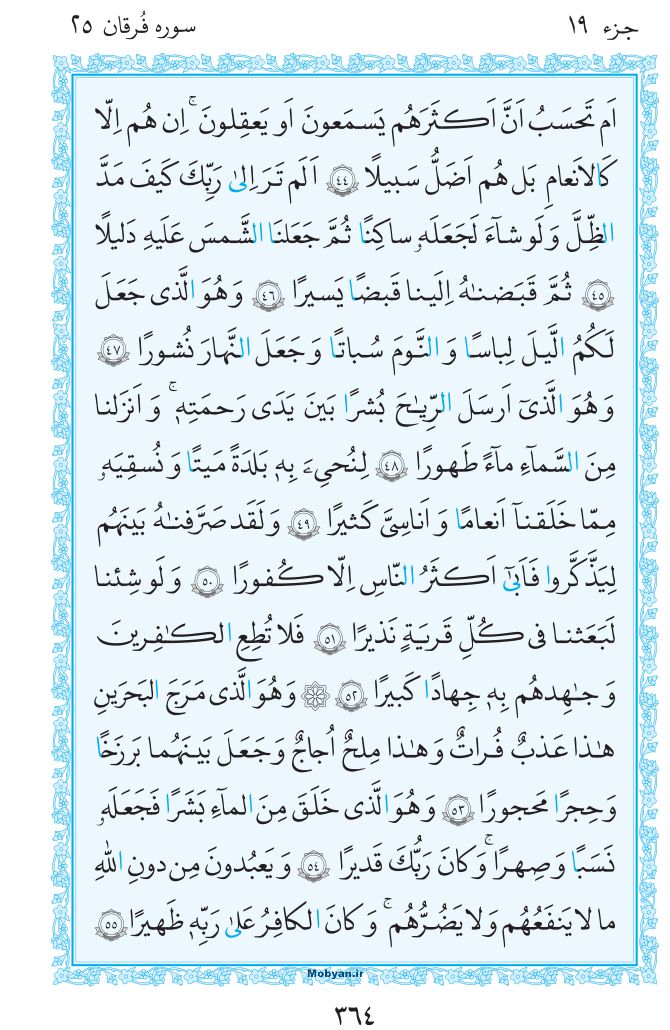 جزء ۱۹
سوره فُرقان ۲۵
اَم تَحسَبُ اَنَّ اَكثَرَهُم يَسمَعونَ اَو يَعقِلونَ ۚ اِن هُم اِلّا
كَالاَنعامِ بَل هُم اَضَلُّ سَبيلًا ﴿٤٤﴾ اَلَم تَرَ اِلىٰ رَبِّكَ كَيفَ مَدَّ
الظِّلَّ وَ لَو شآءَ لَجَعَلَهٗ ساكِنًا ثُمَّ جَعَلنَا الشَّمسَ عَلَيهِ دَليلًا
﴿٤٥﴾ ثُمَّ قَبَضنٰهُ اِلَينا قَبضًا يَسيرًا ﴿٤٦﴾ وَ هُوَ الَّذى جَعَلَ
لَكُمُ الَّيلَ لِباسًا وَ النَّومَ سُباتًا وَ جَعَلَ النَّهارَ نُشورًا ﴿٤٧﴾
وَ هُوَ الَّذىٓ اَرسَلَ الرِّيٰحَ بُشرًا بَينَ يَدَى رَحمَتِهٖ ۚ وَ اَنزَلنا
مِنَ السَّمآءِ مآءً طَهورًا ﴿٤٨﴾ لِنُحيِۦَ بِهٖ بَلدَةً مَيتًا وَ نُسقِيَهٗ
مِمّا خَلَقنآ اَنعامًا وَ اَناسِىَّ كَثيرًا ﴿٤٩﴾ وَ لَقَد صَرَّفنٰهُ بَينَهُم
لِيَذَّكَّروا فَاَبىٰٓ اَكثَرُ النّاسِ اِلّا كُفورًا ﴿٥٠﴾ وَ لَو شِئنا
لَبَعَثنا فى كُلِّ قَريَةٍ نَذيرًا ﴿٥١﴾ فَلا تُطِعِ الكٰفِرينَ
وَ جٰهِدهُم بِهٖ جِهادًا كَبيرًا ﴿٥٢﴾ ۞ وَ هُوَ الَّذى مَرَجَ البَحرَينِ
هٰذا عَذبٌ فُراتٌ وَ هٰذا مِلحٌ اُجاجٌ وَ جَعَلَ بَينَهُما بَرزَخًا
وَ حِجرًا مَحجورًا ﴿٥٣﴾ وَ هُوَ الَّذى خَلَقَ مِنَ المآءِ بَشَرًا فَجَعَلَهٗ
نَسَبًا وَ صِهرًا ۗ وَ كانَ رَبُّكَ قَديرًا ﴿٥٤﴾ وَ يَعبُدونَ مِن دونِ اللّٰهِ
ما لا يَنفَعُهُم وَ لا يَضُرُّهُم ۗ وَ كانَ الكافِرُ عَلىٰ رَبِّهٖ ظَهيرًا ﴿٥٥﴾
Mobyan.ir
٣٦٤